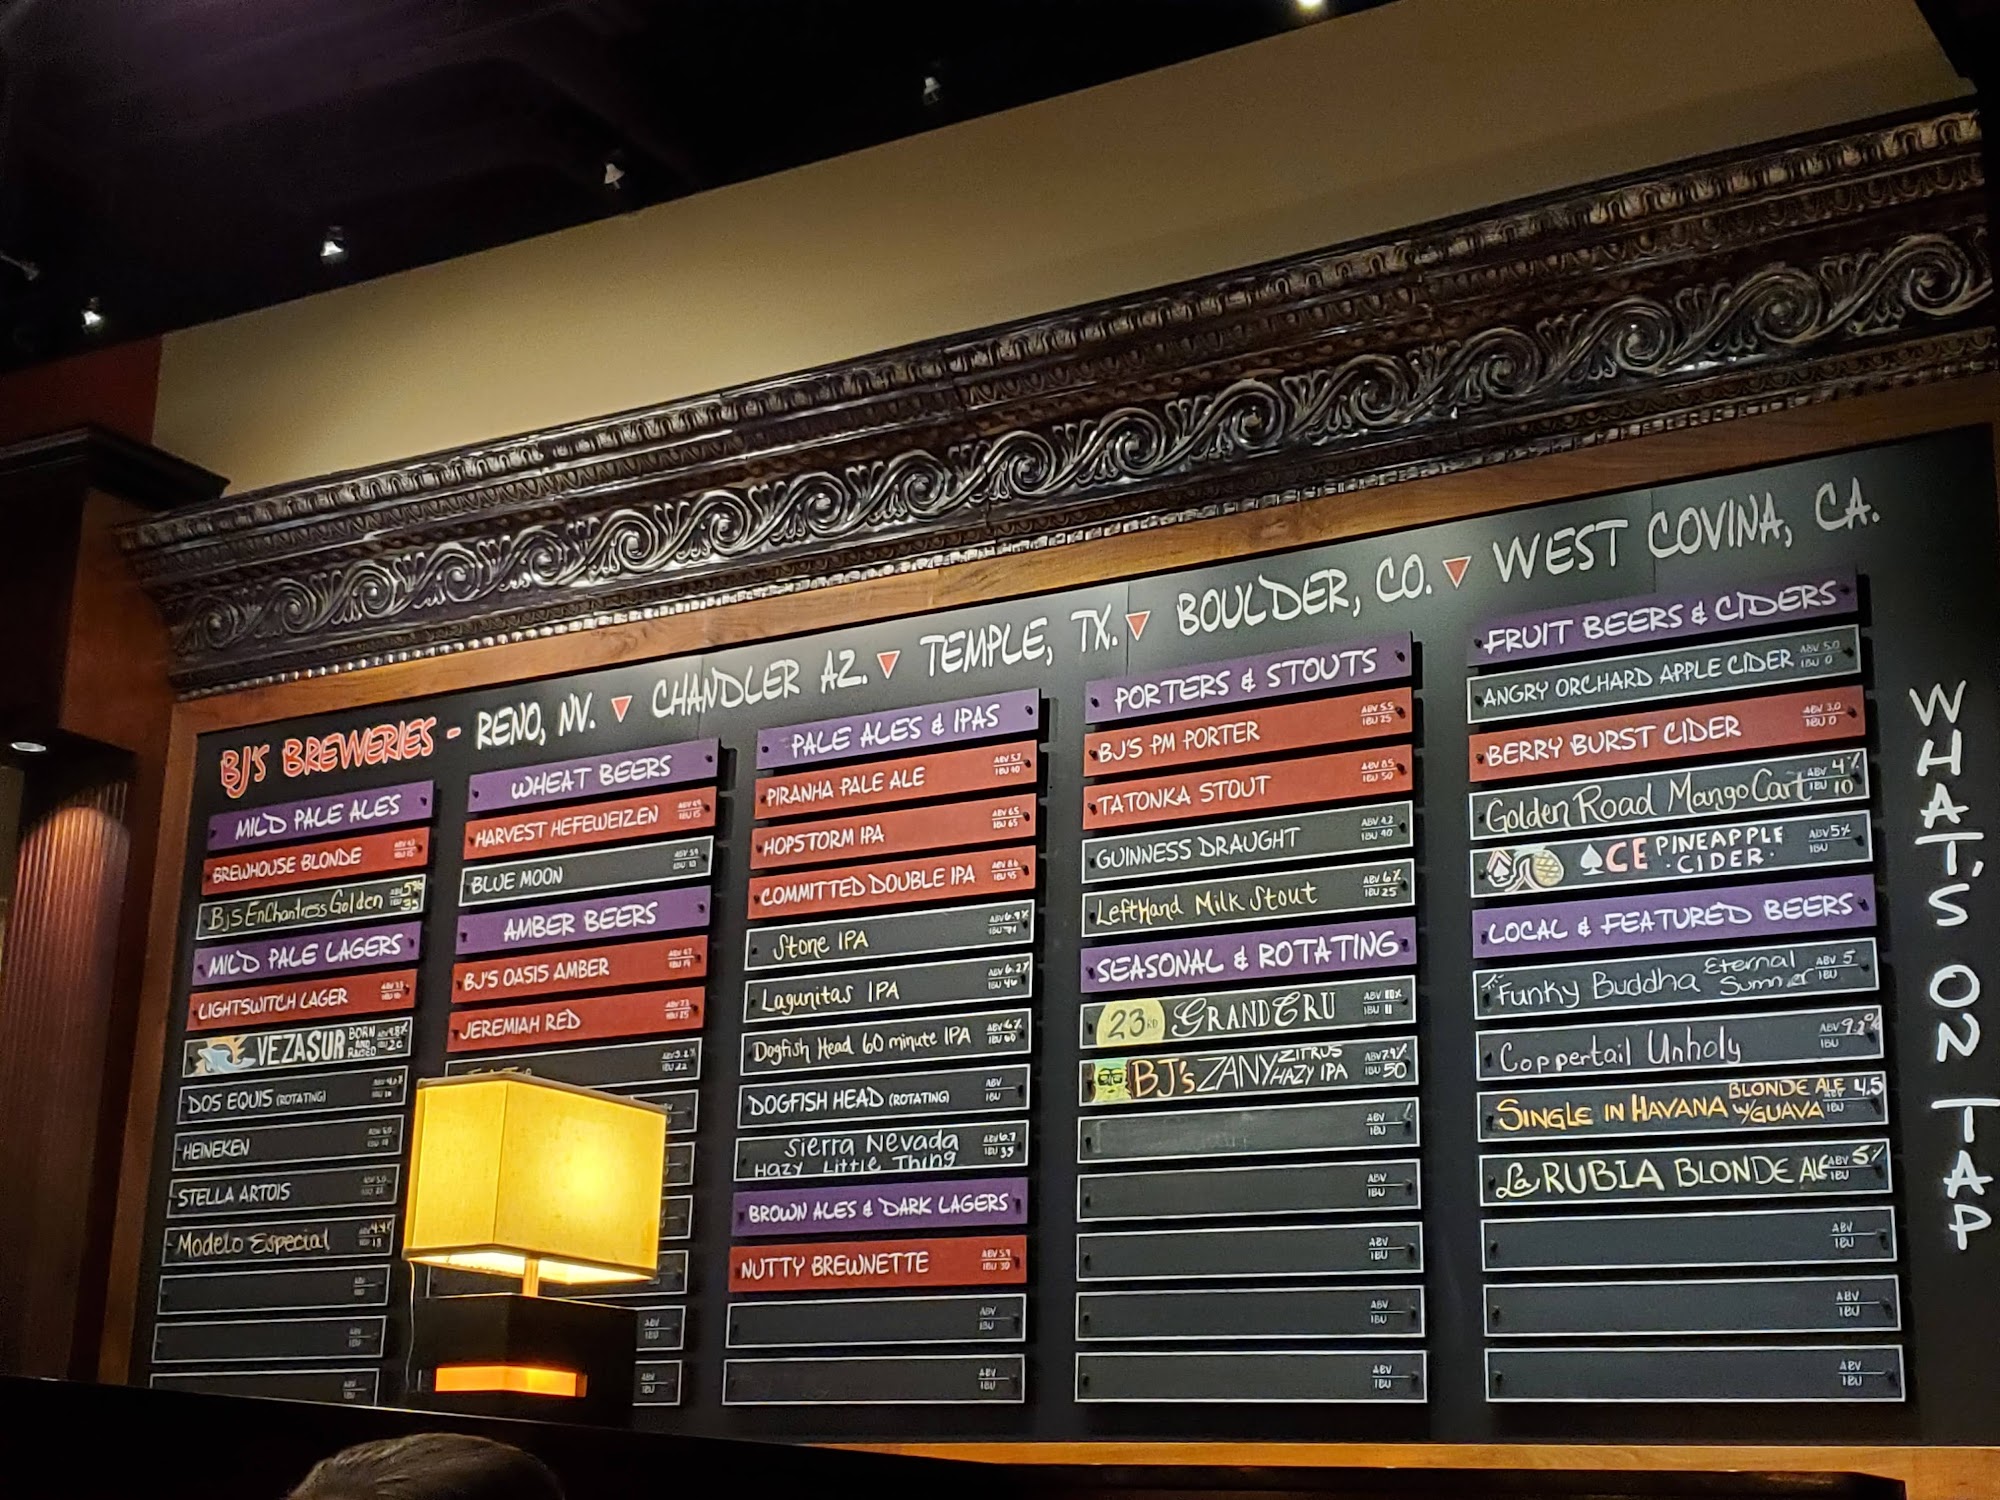 BJ'S BREWERIES - RENO, NV. CHANDLER AZ. TEMPLE, TX. BOULDER, CO. WEST COVINA, CA.
MILD PALE ALES
BREWHOUSE BLONDE
BJS EnChantress Golden ABV 5% IBU 35
MILD PALE LAGERS
LIGHTSWITCH LAGER
VEZASUR BORN AND RAISED
DOS EQUIS (ROTATING)
HEINEKEN
STELLA ARTOIS
Modelo Especial
WHEAT BEERS
HARVEST HEFEWEIZEN
BLUE MOON
AMBER BEERS
BJ'S OASIS AMBER
JEREMIAH RED
PALE ALES & IPAS
PIRANHA PALE ALE
HOPSTORM IPA
COMMITTED DOUBLE IPA
Stone IPA
Lagunitas IPA
Dogfish Head 60 minute IPA ABV 6% IBU 60
DOGFISH HEAD (ROTATING) ABV IBU
Sierra Nevada
Hazy Little Thing ABV 6.7 IBU 35
BROWN ALES & DARK LAGERS
NUTTY BREWNETTE ABV 5.9 IBU 30
ABV IBU
ABV IBU
PORTERS & STOUTS
BJ'S PM PORTER ABV 5.5 IBU 25
TATONKA STOUT ABV 8.5 IBU 50
GUINNESS DRAUGHT ABV 4.2 IBU 40
LeftHand Milk Stout ABV 6% IBU 25
SEASONAL & ROTATING
23RD GRAND CRU
BJ'S ZANY ZITRUS HAZY IPA ABV 7.9% IBU 50
ABV IBU
ABV IBU
ABV IBU
ABV IBU
ABV IBU
FRUIT BEERS & CIDERS
ANGRY ORCHARD APPLE CIDER ABV 5.0 IBU 0
BERRY BURST CIDER ABV 3.0 IBU 0
Golden Road Mango Cart ABV 4% IBU 10
ACE PINEAPPLE CIDER ABV 5% IBU
LOCAL & FEATURED BEERS
Funky Buddha Eternal ABV 5 IBU
Coppertail Unholy ABV 9.2% IBU
SINGLE IN HAVANA BLONDE ALE W/GUAVA ABV 4.5 IBU
La RUBIA BLONDE ALE ABV 5% IBU
ABV IBU
ABV IBU
ABV IBU
WHAT'S ON TAP